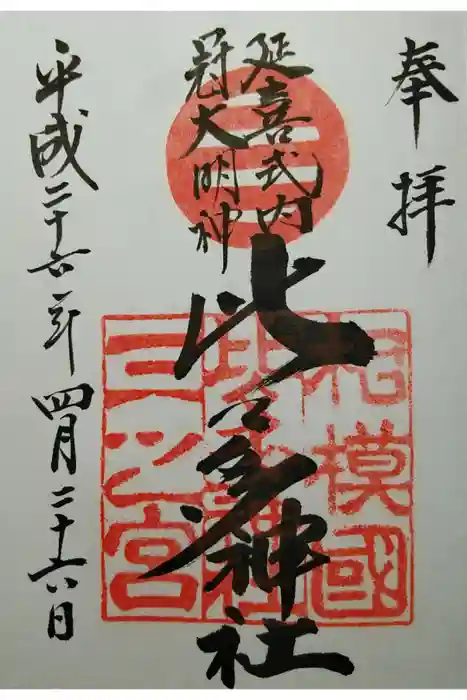 奉拝
延喜式内
冠大明神
比々多神社
相模國
比々多神社
三之宮
平成二十六年四月二十六日